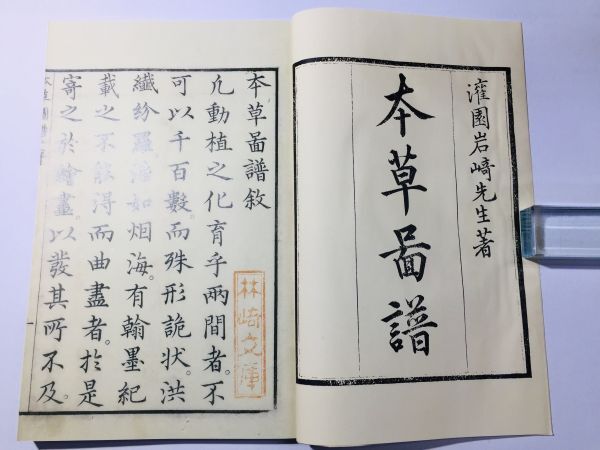 灌園岩﨑先生著
本草啚譜
本草啚譜敘
凡動植之化育乎兩間者。不
可以千百數。而殊形詭状。洪
纖紛羅。浩如烟海。有翰墨紀
載之不能得而曲盡者。於是
寄之於繪畫。以發其所不及。
林崎文庫